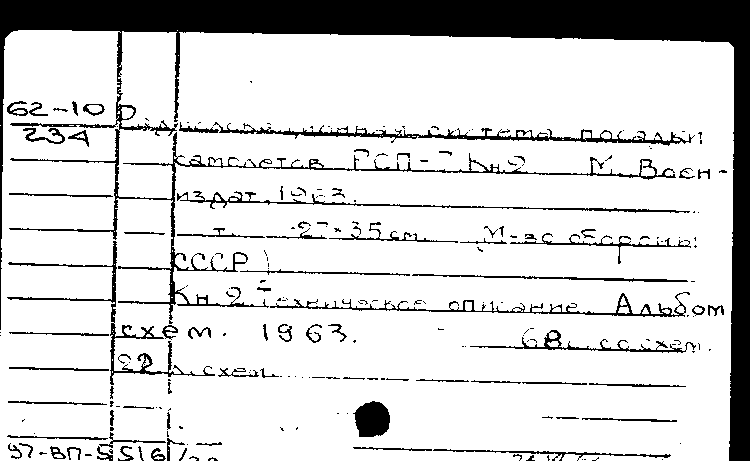 62-10
234
Радиолокационная система посадки
самолетов РСП-7 Кн.2 М. Воен-
издат, 1963.
т. 27×35 см. (М-во обороны
СССР)
Кн.2. Техническое описание. Альбом
схем. 1963. 68 с. со схем.
22 л. схем.
97-ВП-5516/